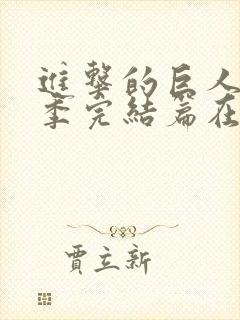 進擊的巨人
季完結篇在
賈立新